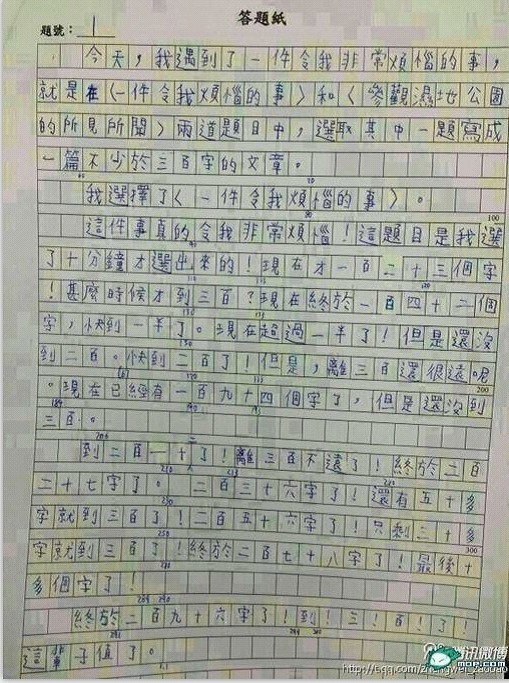 答題紙
題號：1
今天，我遇到了一件令我非常煩惱的事，
就是在〈一件令我煩惱的事〉和〈參觀濕地公園
的所見所聞〉兩道題目中，選取其中一題寫成
一篇不少於三百字的文章。
我選擇了〈一件令我煩惱的事〉。
100
這件事真的令我非常煩惱！這題目是我選
了十分鐘才選出來的！現在才一百二十三個字
！甚麼時候才到三百？現在終於一百四十二個
字，快到一半了。現在超過一半了！但是還沒
到二百。快到二百了！但是，離三百還很遠呢
200
。現在已經有一百九十四個字了，但是還沒到
三百。
到二百一十了！離三百不遠了！終於二百
二十七字了。二百三十六字了！還有五十多
字就到三百了！二百五十六字了！只剩三十多
300
字就到三百了！終於二百七十八字了！最後十
多個字了！
終於二百九十六字了！到！三！百！了！
這輩子值了。
腾讯微博
MOP.COM
http://t.qq.com/zhengwei_zaobao